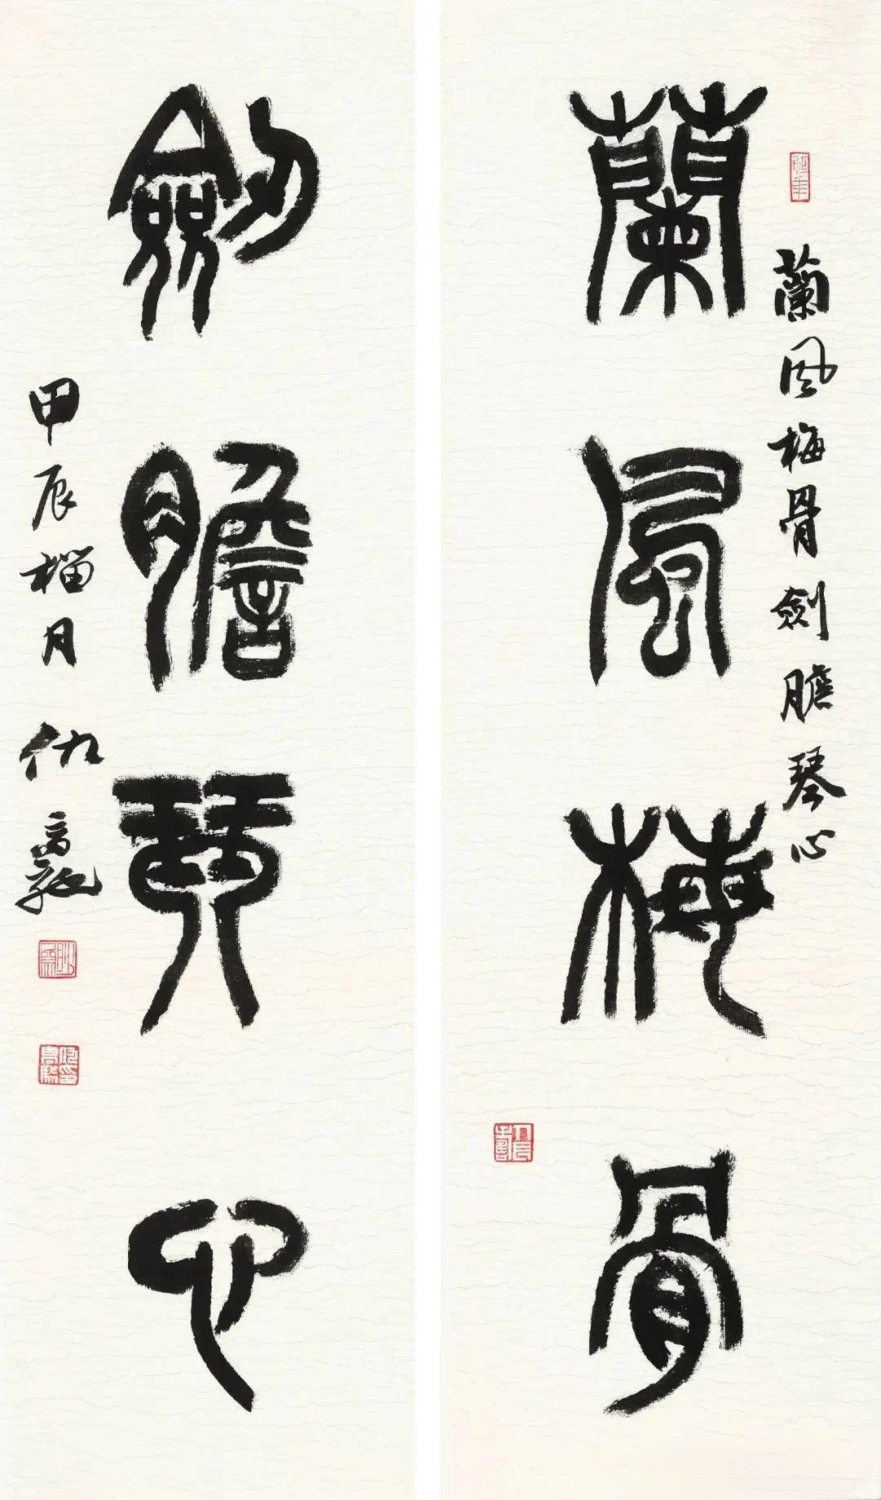 蘭風梅骨劍膽琴心
蘭風梅骨
劍膽琴心
甲辰榴月仇高馳